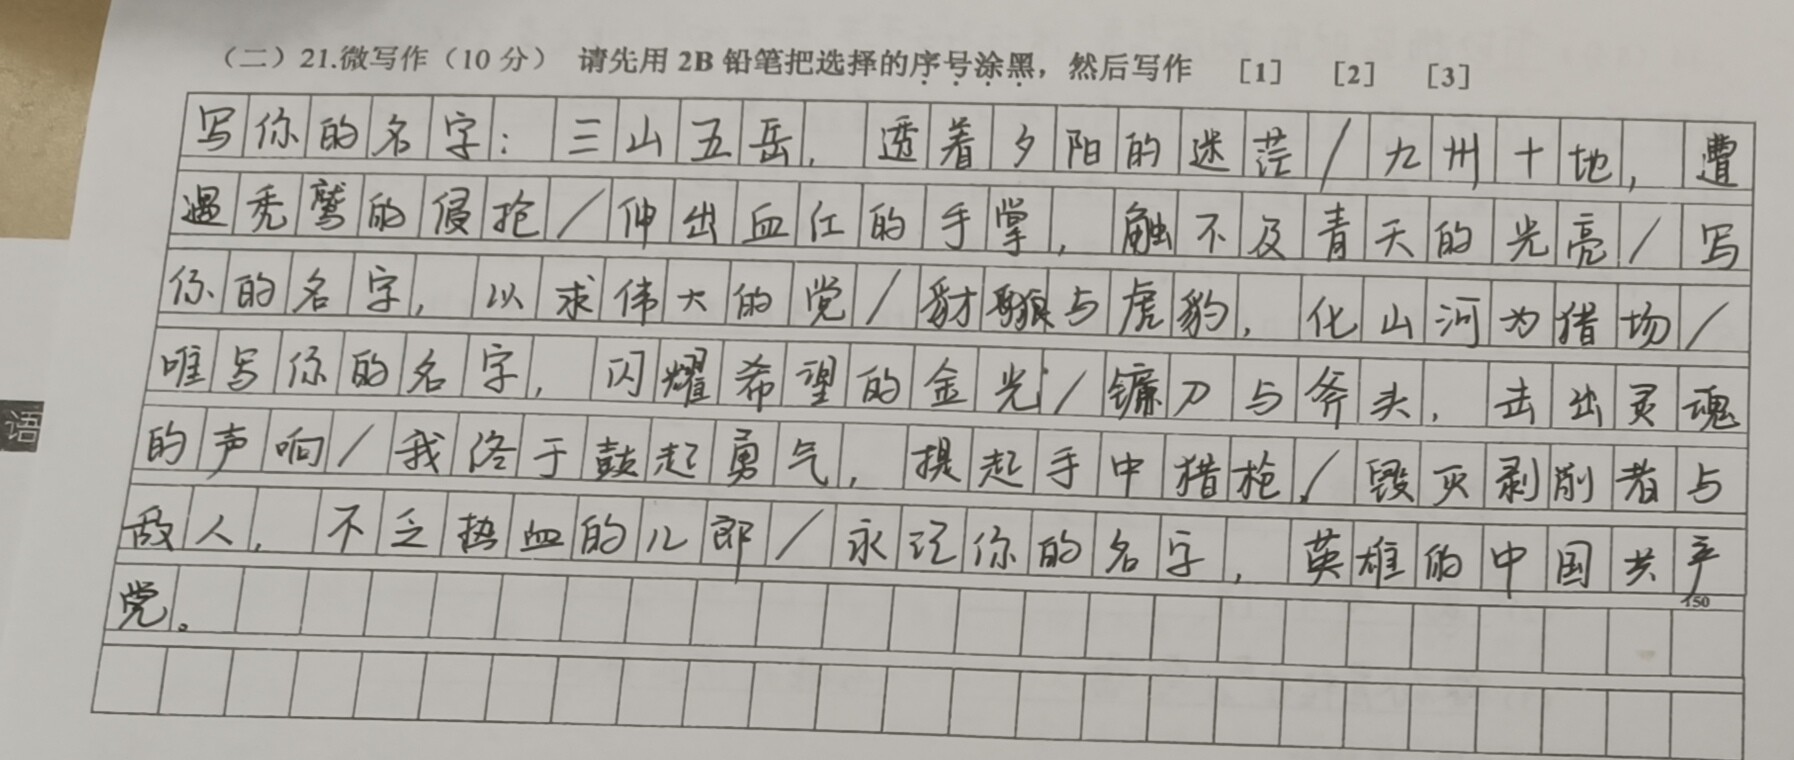 （二）21.微写作（10 分） 请先用 2B 铅笔把选择的序号涂黑，然后写作 [1] [2] [3]
写你的名字：三山五岳，透着夕阳的迷茫/九州十地，遭
遇秃鹫的侵抢/伸出血红的手掌，触不及青天的光亮/写
你的名字，以求伟大的党/豺狼与虎豹，化山河为猎场/
唯写你的名字，闪耀希望的金光/镰刀与斧头，击出灵魂
的声响/我终于鼓起勇气，提起手中猎枪/毁灭剥削者与
敌人，不乏热血的儿郎/永记你的名字，英雄的中国共产
党。
150
语